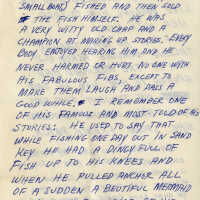 SMALL BOAT) FISHED AND THEN SOLD
THE FISH HIMSELF. HE WAS
A VERY WITTY OLD CHAP AND A
CHAMPION AT MAKING UP STORIES. EVERY
BODY ENJOYED HEARING HIM AND HE
NEVER HARMED OR HURT NO ONE WITH
HIS FABULOUS FIBS, EXCEPT TO
MAKE THEM LAUGH AND PASS A
GOOD WHILE. I REMEMBER ONE
OF HIS FAMOUS AND MOST TOLD OF HIS
STORIES: HE USED TO SAY THAT
WHILE FISHING ONE DAY OUT IN SAND
KEY HE HAD A DINGY FULL OF
FISH UP TO HIS KNEES AND
WHEN HE PULLED ANCHOR ALL
OF A SUDDEN A BEUTIFUL MERMAID